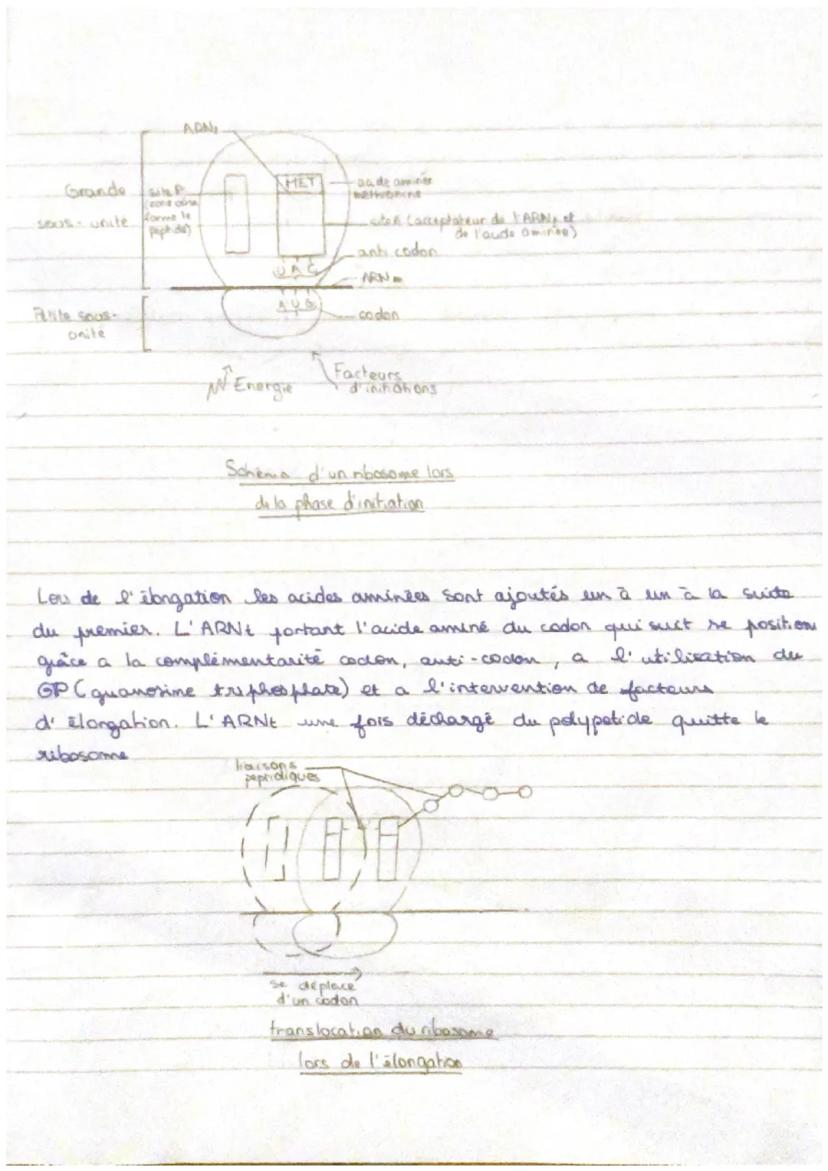 ARNt
Grande
sous-unité
site P
(zone où se
forme le
peptide)
MET
acide aminée
méthionine
site A (acceptateur de l'ARNt et
de l'acide aminée)
anti codon
U A C
ARNm
A U G
codon
Petite sous-
unité
Energie
Facteurs
d'initiations
Schéma d'un ribosome lors
de la phase d'initiation
Lors de l'élongation les acides aminées sont ajoutés un à un à la suite
du premier. L'ARNt portant l'acide aminé du codon qui suit se position
grâce a la complémentarité codon, anti-codon, a l'utilisation du
GP (guanosine triphosphate) et a l'intervention de facteurs
d'élongation. L'ARNt une fois déchargé du polypetide quitte le
ribosome
liaisons
peptidiques
se déplace
d'un codon
translocation du ribosome
lors de l'élongation